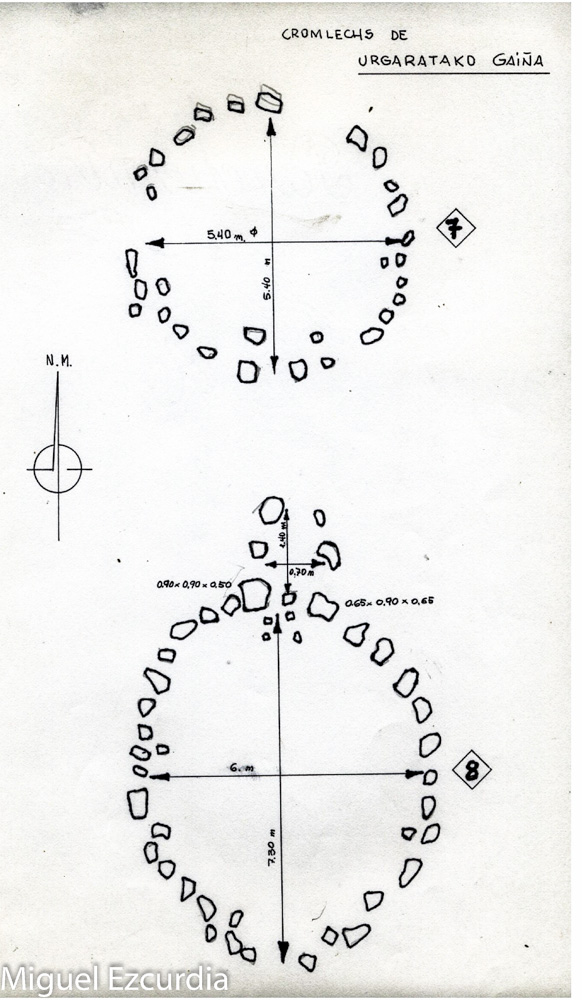 CROMLECHS DE
URGARATAKO GAIÑA
7
5.40 m. φ
5.40 m
N.M.
2.40 m
0,70 m
0.90 x 0,90 x 0.50
0.65 x 0,90 x 0,65
6. m
8
7.30 m
Miguel Ezcurdia